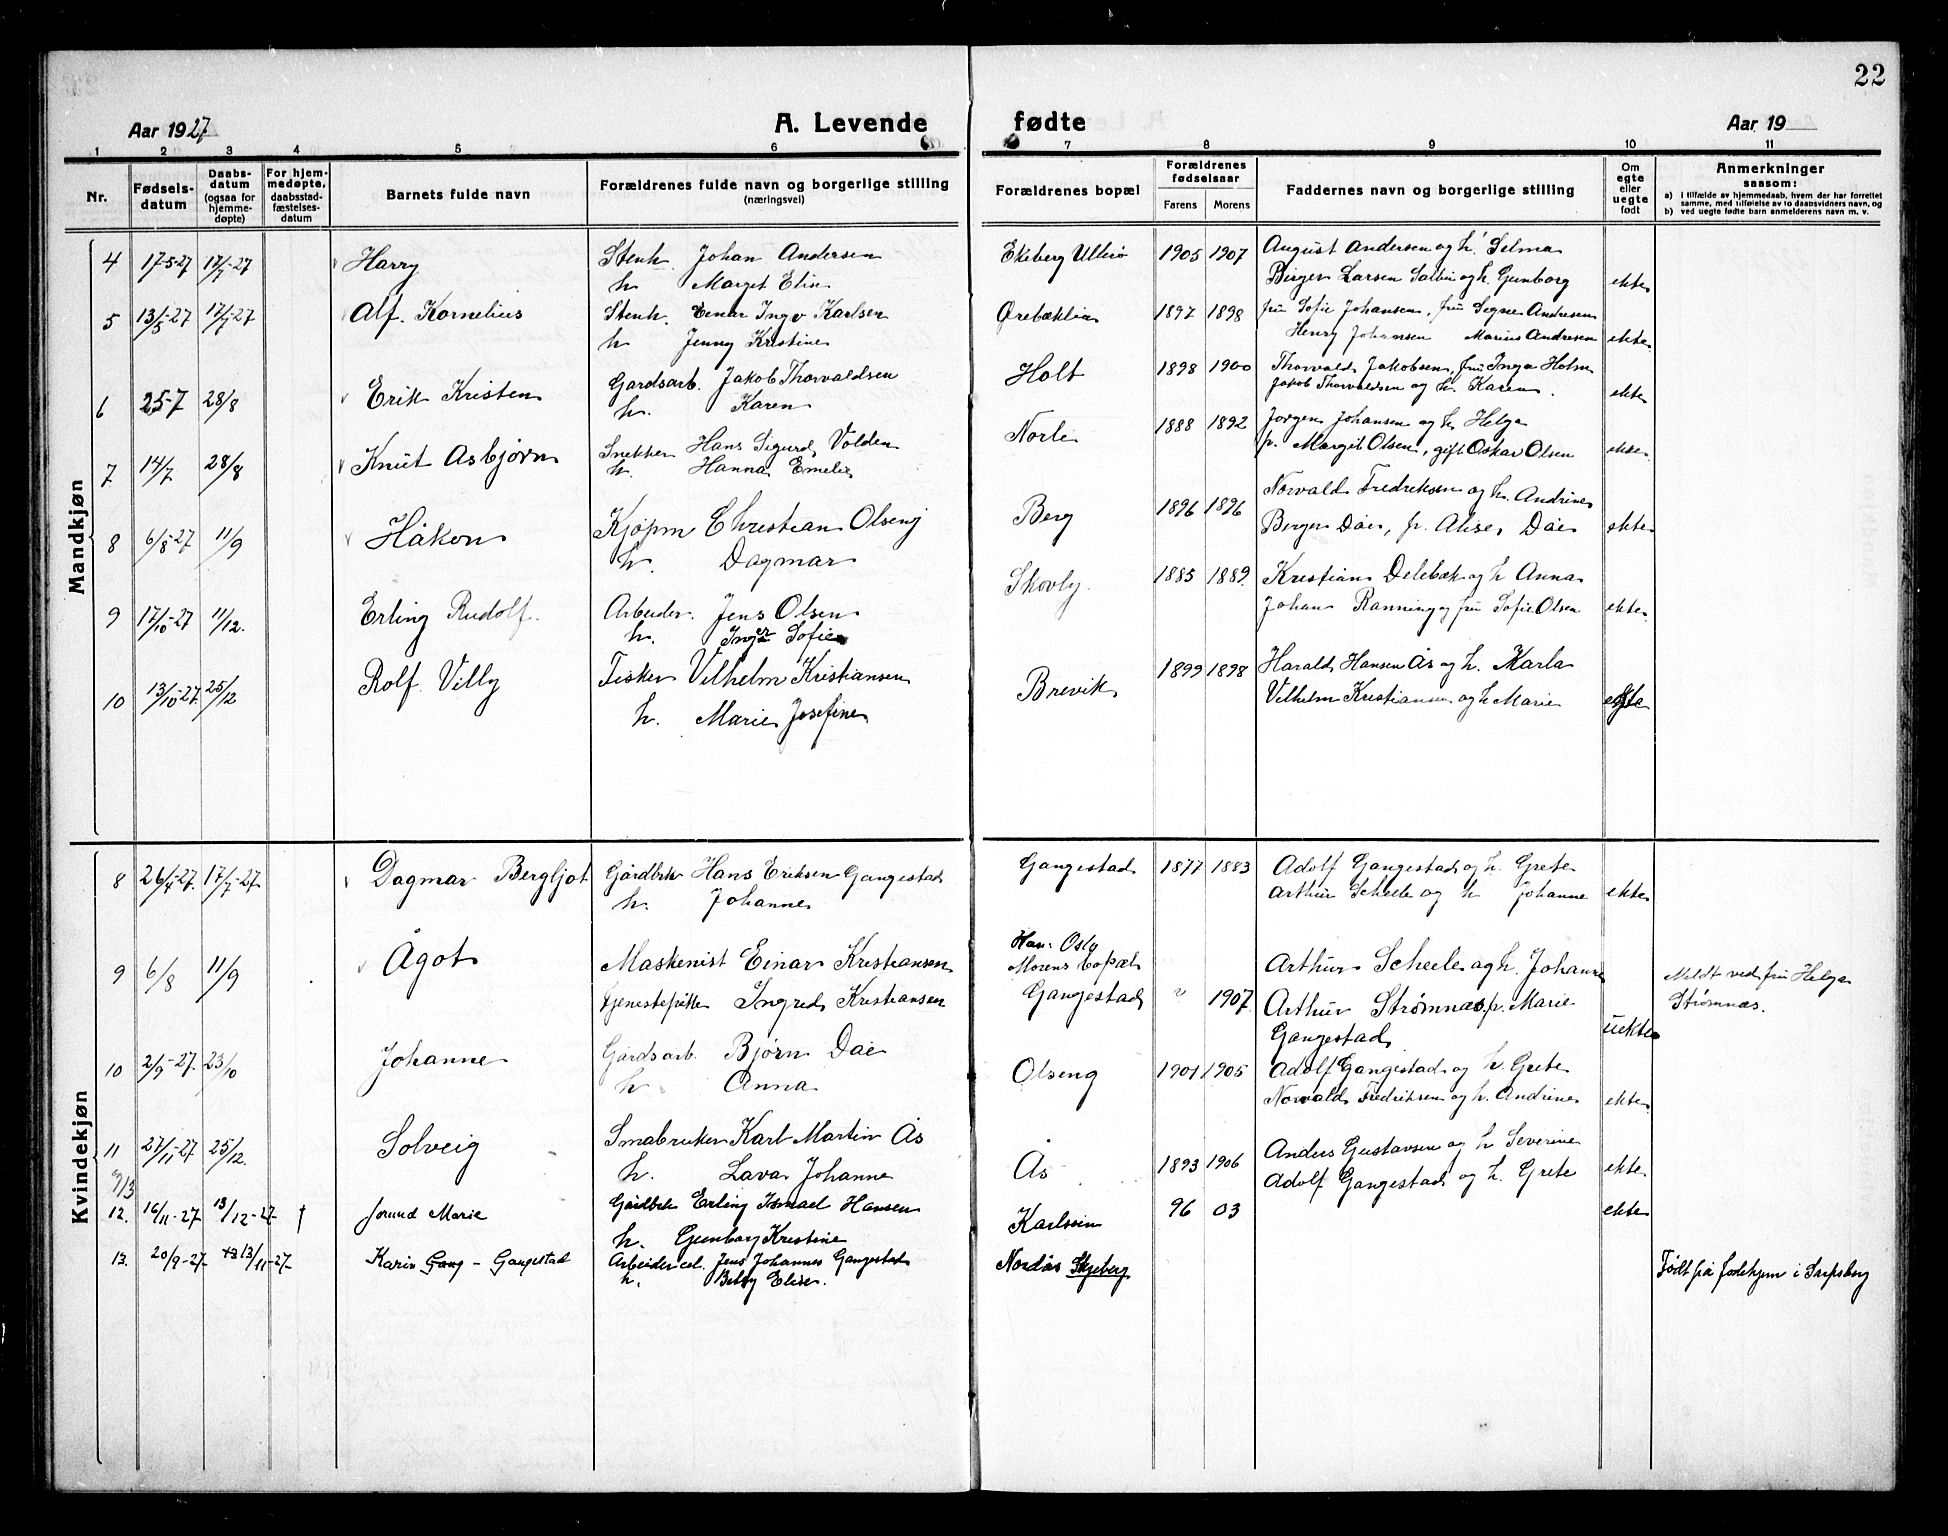 22
Aar 1927
A. Levende fødte
Aar 19
1 2 3 4 5 6 7 8 9 10 11
Nr.
Fødsels-
datum
Daabs-
datum
(ogsaa for
hjemme-
døpte)
For hjem-
medøpte,
daabsstad-
fæstelses-
datum
Barnets fulde navn
Forældrenes fulde navn og borgerlige stilling
(næringsvei)
Forældrenes bopæl
Forældrenes
fødselsaar
Farens Morens
Faddernes navn og borgerlige stilling
Om
egte
eller
uegte
født
Anmerkninger
saasom:
a) i tilfælde av hjemmedaab, hvem der har forrettet
samme, med tilføielse av to daabsvidners navn, og
b) ved uegte fødte barn anmelderens navn m. v.
Mandkjøn
4 17-5-27 17/7-27 Harry Stenh. Johan Andersen Ekeberg Ullerö 1905 1907 August Andersen og h. Selma
h. Marget Elise Birger Larsen og h. Gunborg ekte
5 13/5-27 17/7-27 Alf. Kornelius Stenh. Einar Ingv Karlsen Ørebæklia 1897 1898 frü Sofie Johansen, frü Signe Andresen
h. Jenny Kristine Henry Johansen Marius Andresen ekte
6 25-7 28/8 Erik Kristen Gardsarb. Jakob Thorvaldsen Holt 1898 1900 Thorvald Jakobsen, frü Inga Holm
h. Karen Jakob Thorvaldsen og h. Karen. ekte
7 14/7 28/8 Knut Asbjørn Snekker Hans Sigurd Volden Norli 1888 1892 Jørgen Johansen og h. Helga
h. Hanna Emelie p. Margit Olsen, gift Oskar Olsen ekte
8 6/8-27 11/9 Håkon Kjöpm Christian Olseng Berg 1896 1896 Norvald Fredriksen og h. Andrine
h. Dagmar Berger Dae, p. Alise Dae ekte
9 17/10-27 11/12. Erling Rudolf. Arbeider. Jens Olsen Skovly 1885 1889. Kristian Delebæk og h Anna
h. Inger Sofie Johan Ranning og frü Sofie Olsen ekte
10 13/10-27 25/12 Rolf Villy Fisker Vilhelm Kristiansen Brevik 1899 1898 Harald Hansen Ås og h. Karla
h. Marie Josefine Vilhelm Kristiansen og h Marie egte
Kvindekjøn
8 26/4-27 17/7-27 Dagmar Bergljot Gårdbrk Hans Eriksen Gangestad Gangestad 1877 1883 Adolf Gangestad og h. Grete
h. Johanne Arthur Scheele og h Johanne ekte
9 6/8 11/9 Ågot Maskenist Einar Kristiansen Han: Oslo
Morens bopæl
Arthur Scheele og h. Johanne Meldt ved frü Helga
Tjenestepike Ingrid Kristiansen Gangestad 1907 Arthur Strømnes p. Marie Strømnæs.
Gangestad uekte
10 2/9-27 23/10 Johanne Gårdsarb. Bjørn Dae Olseng 1901 1905 Adolf Gangestad og h. Grete
h Anna Norvald Fredriksen og h. Andrine ekte
11 27/11-27 25/12. Solveig Småbruker Karl Martin Ås Ås 1893 1906 Anders Gustavsen og h Severine
h. Lava Johanne Adolf Gangestad og h. Grete ekte
12. 16/11-27 13/12-27 † Jorund Marie Gårdbrk Erling Ismael Hansen Karlsein 96 03 ekte
h. Gunborg Kristine
13. 20/9-27 13/11-27 Karin Gang - Gangestad Arbeider Jens Johannes Gangestad Nordås Skjeberg
h. Betsy Elise. Født på fødehjem i Sarpsborg